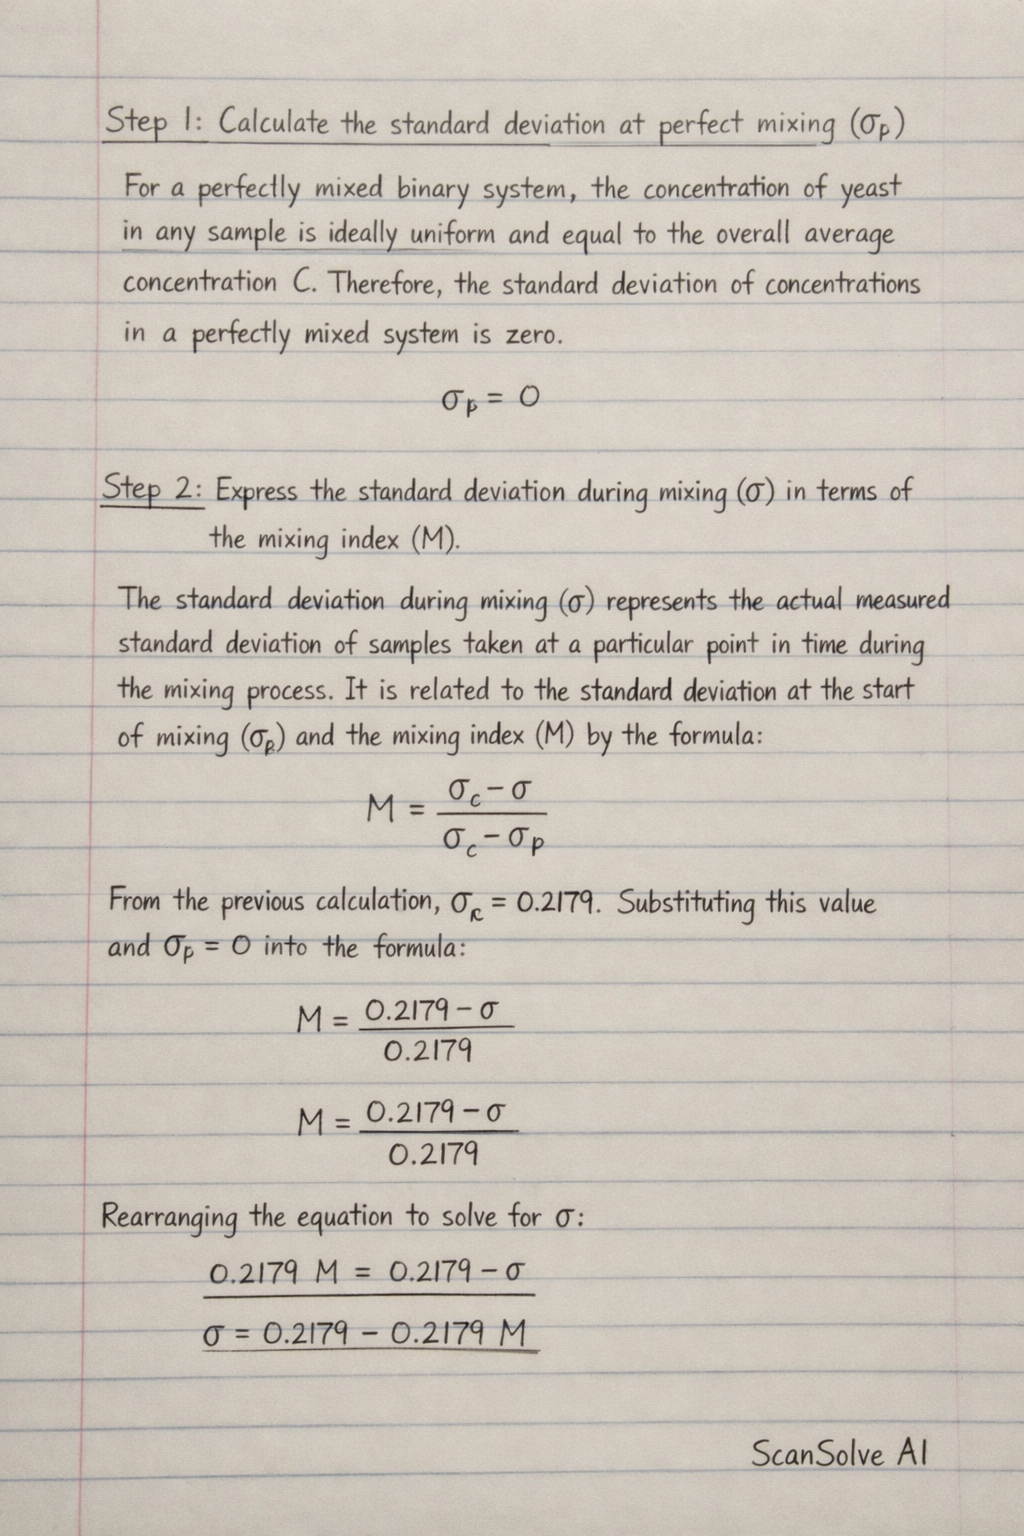 Step 1: Calculate the standard deviation at perfect mixing (σₚ)
For a perfectly mixed binary system, the concentration of yeast
in any sample is ideally uniform and equal to the overall average
concentration C. Therefore, the standard deviation of concentrations
in a perfectly mixed system is zero.
σₚ = 0
Step 2: Express the standard deviation during mixing (σ) in terms of
the mixing index (M).
The standard deviation during mixing (σ) represents the actual measured
standard deviation of samples taken at a particular point in time during
the mixing process. It is related to the standard deviation at the start
of mixing (σₚ) and the mixing index (M) by the formula:
M = (σ_c − σ) / (σ_c − σₚ)
From the previous calculation, σ_c = 0.2179. Substituting this value
and σₚ = 0 into the formula:
M = (0.2179 − σ) / 0.2179
M = (0.2179 − σ) / 0.2179
Rearranging the equation to solve for σ:
0.2179 M = 0.2179 − σ
σ = 0.2179 − 0.2179 M
ScanSolve AI